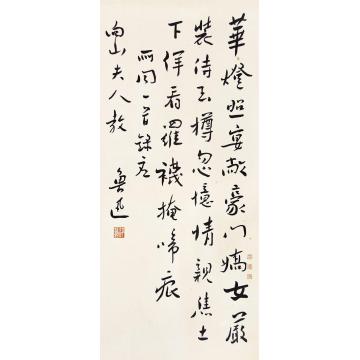 華燈照宴敞豪門嬌女嚴
裝侍玉樽忽憶情親焦土
下佯看羅襪掩啼痕
所聞一首錄應
向山夫人教
魯迅